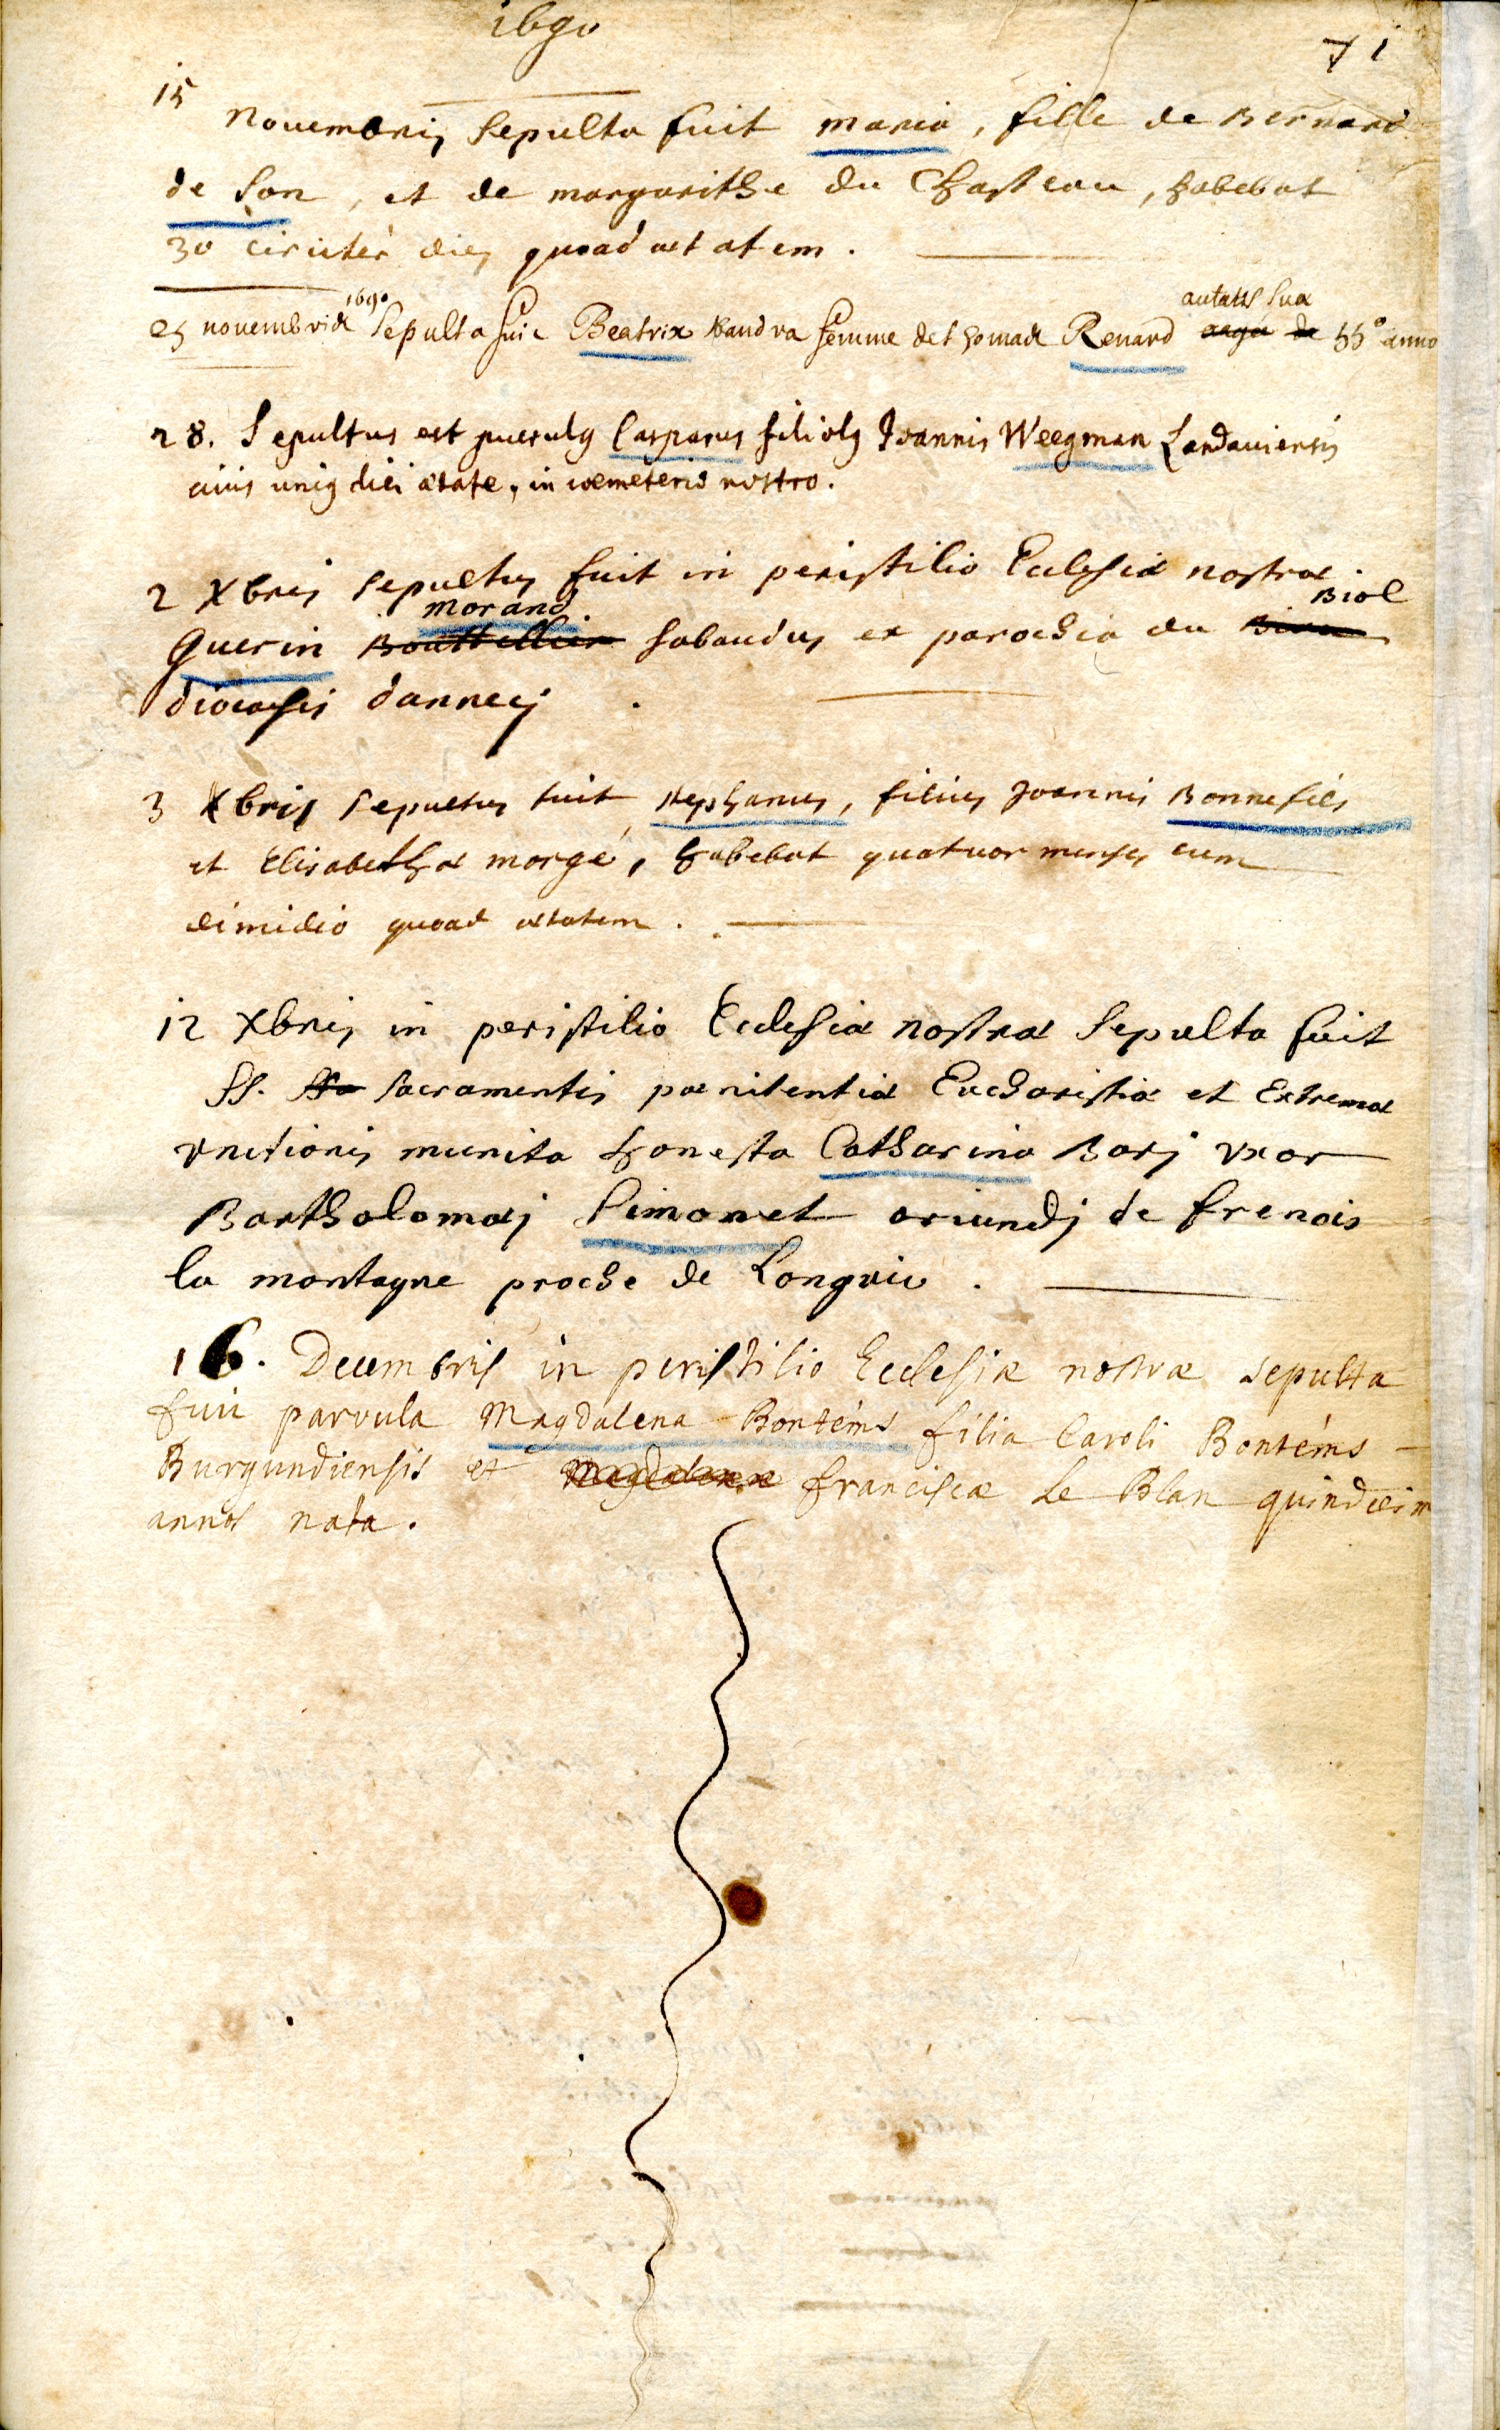 1690
71
15
Nouembris sepulta fuit maria, fille de Bernard
de Son, et de margarithe du Chasteau, habebat
30 circiter dies quoad aetatem.
1690
aetatis suae
25 novembris sepulta fuit Beatrix femme de thomas Renard aagée de 55° anno
28. Sepultus est puerulus Casparus filiolus Joannis Weegman Landauiensis
unius diei aetate, in coemeterio nostro.
2 Xbris sepultus fuit in peristilio Ecclesiae nostrae
morand Biol
Guerin Bouttellier sabaudus ex parochia du
diocaesis d'annecj
3 Xbris sepultus fuit stephanus, filius Joannis Bonnefils
et Elisabethae morge, habebat quatuor menses cum
dimidio quoad aetatem.
12 Xbris in peristilio Ecclesiae nostrae sepulta fuit
SS. sacramentis paenitentiae Eucharistiae et Extremae
vnctionis munita honesta Catharina Barj vxor
Bartholomaej Simonet oriundj de frenois
la montagne proche de Longvic.
16. Decembris in peristilio Ecclesiae nostrae sepulta
fuit parvula Magdalena Bontéms filia Caroli Bontéms
Burgundiensis et Magdalenae franciscae Le Blan quindecim
annos nata.